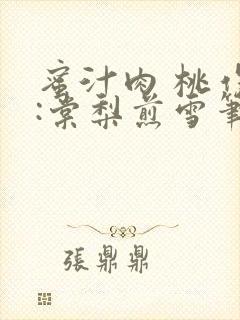 蜜汁肉桃作
:棠梨煎雪筆
張鼎鼎